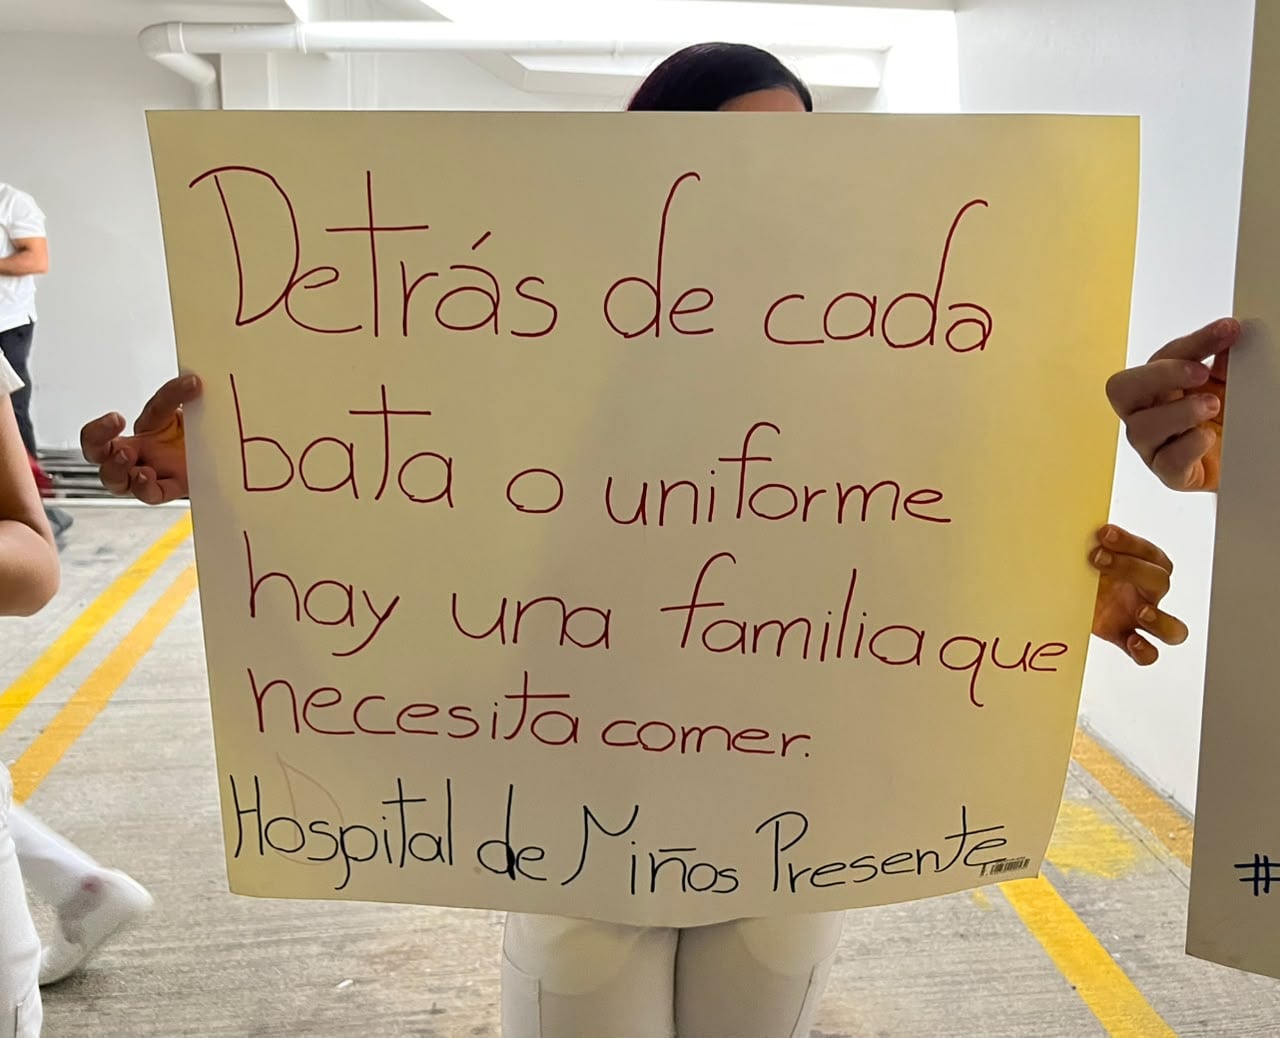 Detrás de cada
bata o uniforme
hay una familia que
necesita comer.
Hospital de Niños Presente
#